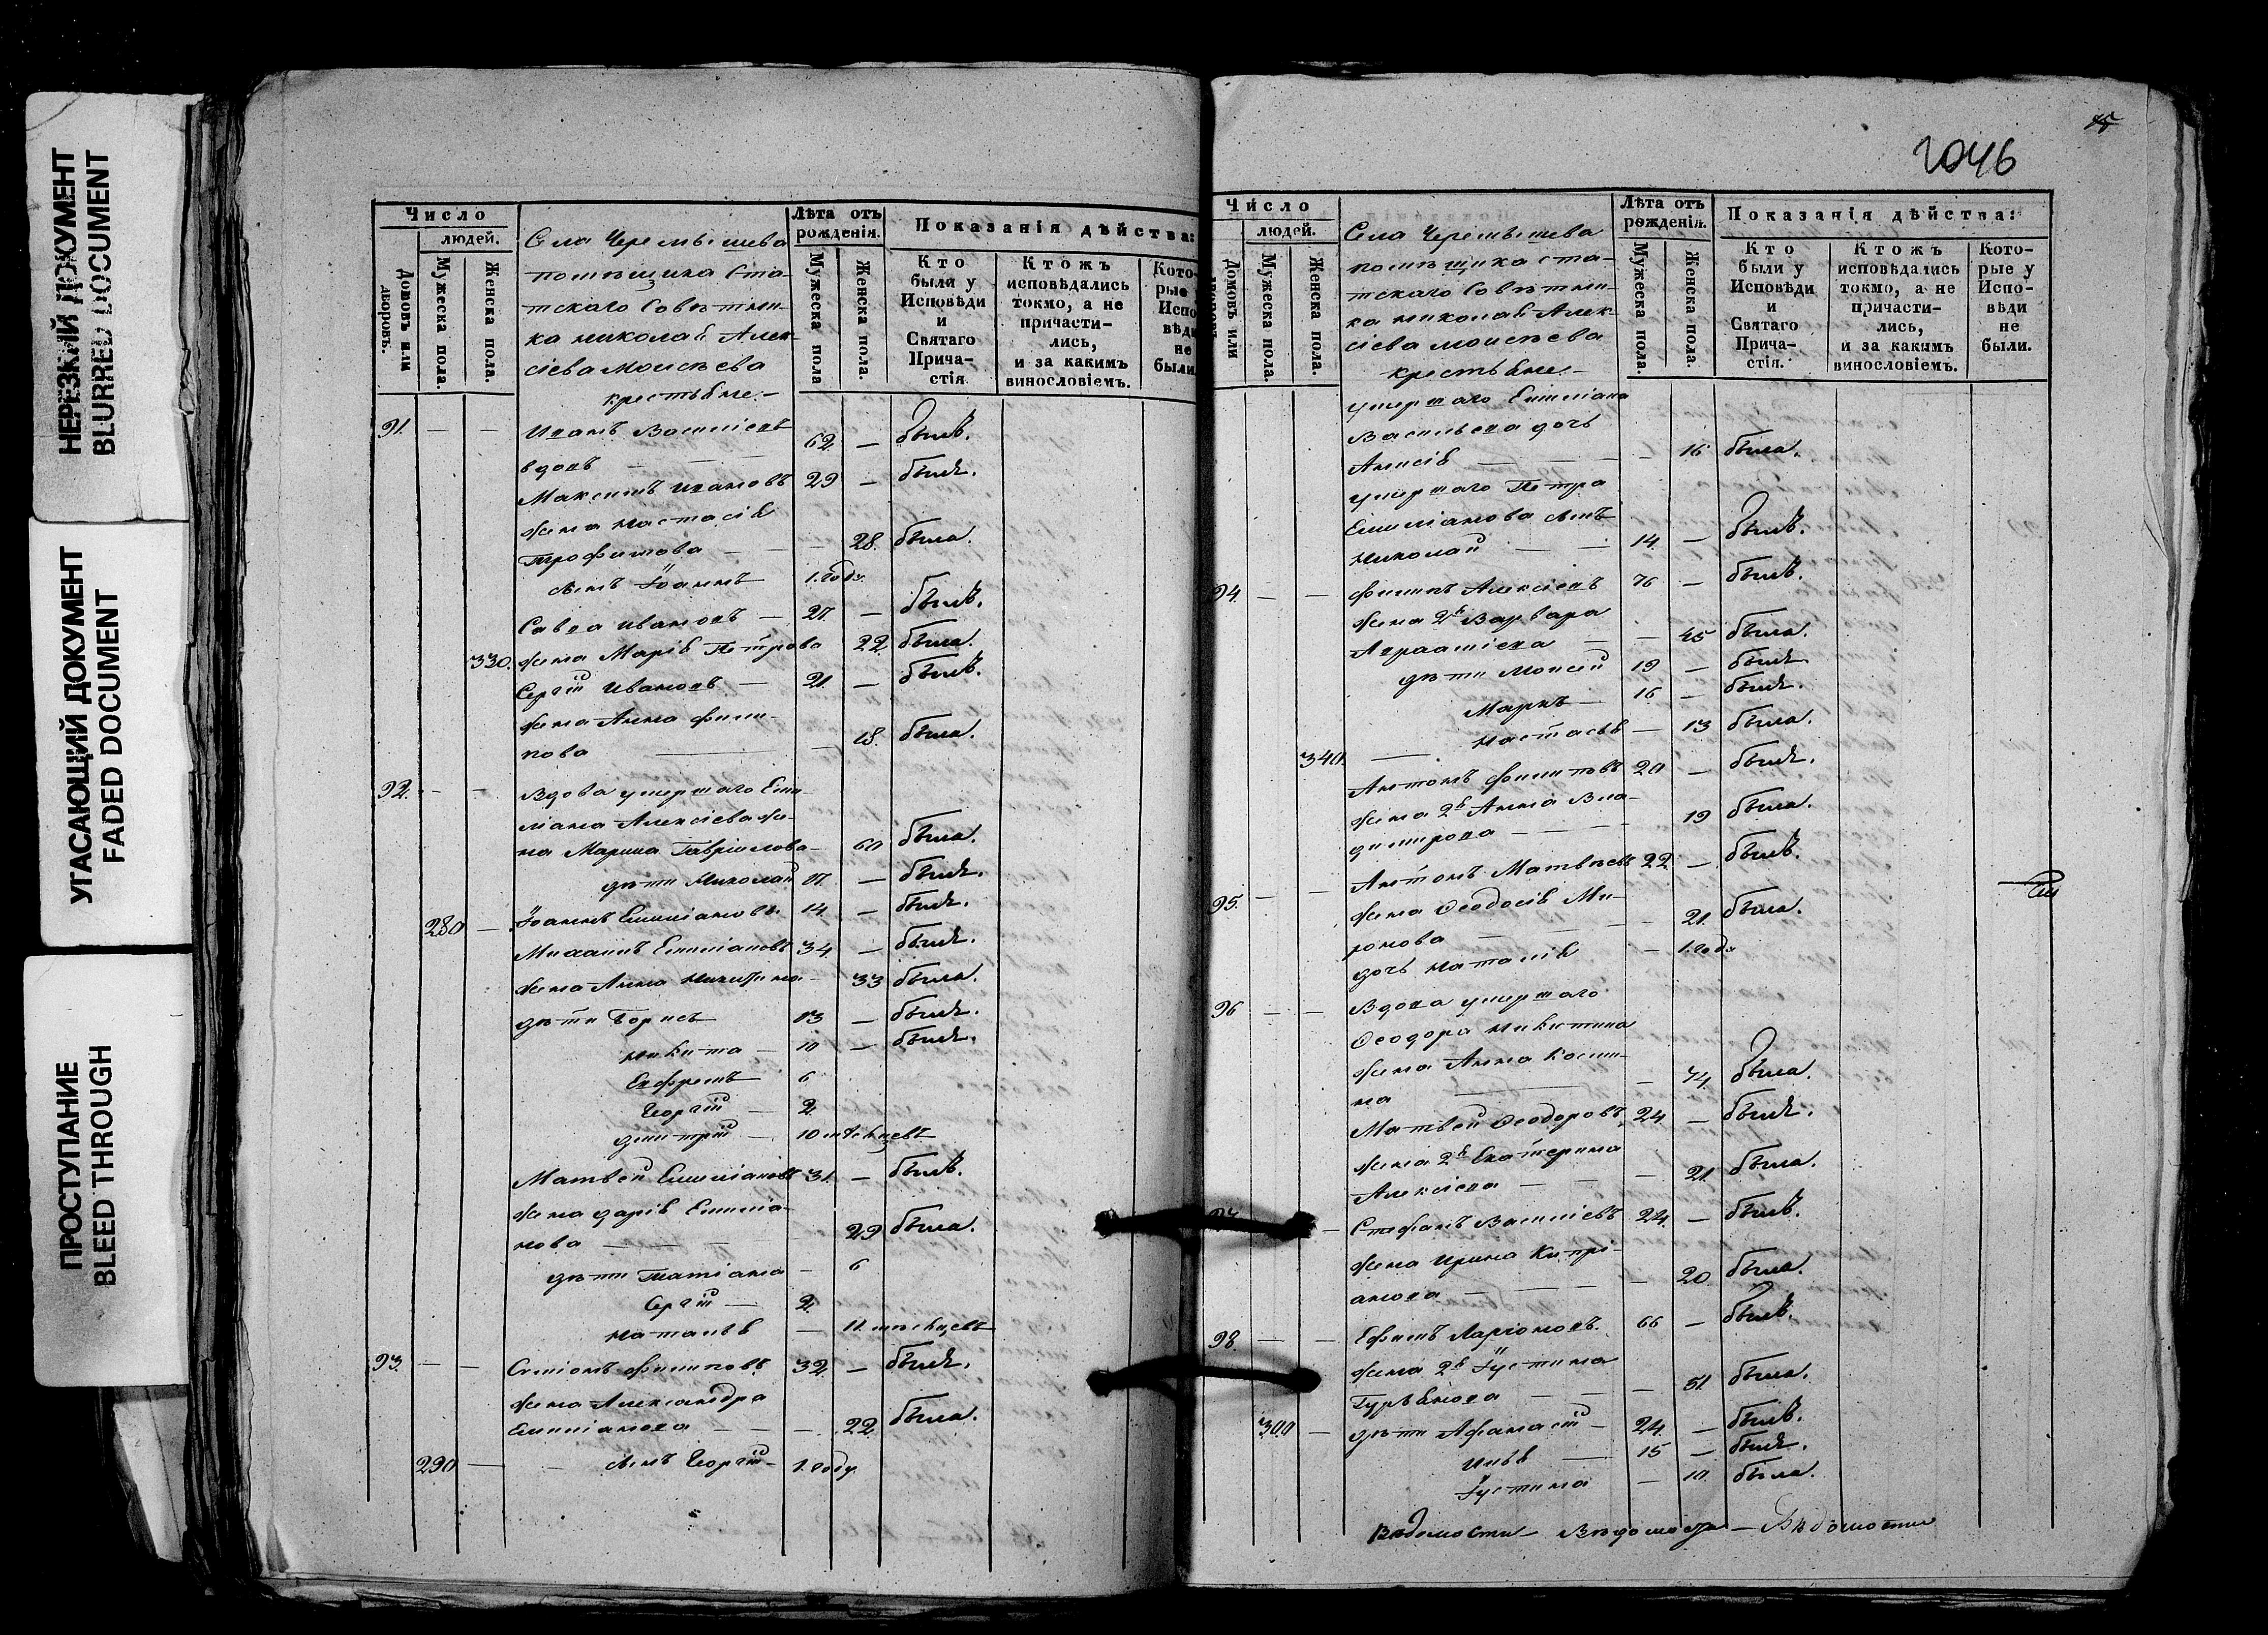 НЕРЕЗКИЙ ДОКУМЕНТ
BLURRED DOCUMENT
УГАСАЮЩИЙ ДОКУМЕНТ
FADED DOCUMENT
ПРОСТУПАНИЕ
BLEED THROUGH
Число
людей.
Домовъ или дворовъ.
Мужеска пола.
Женска пола.
Села Черемышева
помѣщика Ста-
тскаго Совѣтни-
ка николая Алек-
сіева Моисѣева
крестьяне.-
Лѣта отъ рожденія.
Мужеска пола
Женска пола.
Показанія дѣйства:
Кто были у Исповѣди и Святаго Прича-стія
Ктожъ исповѣдались токмо, а не причасти-лись, и за какимъ винословіемъ.
Кото-рые Испо вѣди не были
91. — — Иванъ Василіевъ
вдовъ — 62 — былъ.
Максимъ ивановъ 29 — былъ.
жена настасія
Трофимова — — 28. была.
сынъ Іоаннъ 1. годъ
Савва ивановъ — 27. — былъ.
330. жена Марія Петрова 22 была.
Сергій Ивановъ — 21. — былъ.
жена Анна фили-
пова — — 18. была.
92. — — Вдова умершаго Еми-
ліана Алексіева же-
на Марина Гавріилова — 60 была.
дѣти Николай 17. — былъ.
280 — Іоаннъ Емиліановъ. 14. — былъ.
Михаилъ Емиліановъ 34. — былъ.
жена Анна Никитина — 33 была.
дѣти Борисъ 13 — былъ.
никита — 10 — былъ.
Евфремъ 6
Георгій — 2.
димитрій — 10 мѣсяцевъ
Матвей Емиліановъ 31. — былъ.
жена дарія Емилiа-
нова — — — 29 была.
дѣти Татіана — 6
Сергій — 2.
наталія — 11. мѣсяцевъ
93. — — Симіонъ Филиповъ. 32. — былъ.
жена Александра
Емиліанова — — — 22 была.
290 — сынъ Георгій — 1. годъ.
15
2046
Число
людей.
Домовъ или
Мужеска пола.
Женска пола.
Села Черемышева
помѣщика ста-
тскаго Совѣтни-
ка николая Алек-
сіева моисѣева
крестьяне.-
Лѣта отъ рожденія.
Мужеска пола.
Женска пола.
Показанія дѣйства:
Кто были у Исповѣди и Святаго Прича-стія.
Ктожъ исповѣдались токмо, а не причасти-лись, и за какимъ винословіемъ.
Кото-рые у Испо-вѣди не были.
умершаго Емиліана
Васильева дочь
Анисія — — — 16 была.
умершаго Петра
Емиліанова сынъ
Николай — — 14. — былъ.
94. — — Филипъ Алексіевъ 76 — былъ.
жена 2я Варвара
Авраамiева — — 45 была.
дѣти Моисей 19 — былъ.
Маркъ — 16 — былъ.
настасья — 13 была.
340. —
Антонъ филиповъ 20 — былъ.
жена 2я Анна Вла-
димирова — — 19 была.
95. — — Антонъ Матвѣевъ 22 — былъ.
жена Ѳеодосія Ми-
ронова — — 21. была.
дочь наталія — 1. годъ
96 — — Вдова умершаго
Ѳеодора никитина
жена Анна Косми-
на — — 74. была.
Матвей Ѳеодоровъ. 24. — былъ.
жена 2я Екатерина
Алексіева — — — 21. была.
Стефанъ Василіевъ 24. — былъ.
жена Ирина Кипрі-
анова — — — 20. была.
98. — — Ефимъ Ларіоновъ. 66 — былъ.
жена 2я Іустина
Гурьянова — — 51. была.
300 — дѣти Афанасій — 24. — былъ.
Илья — 15 — былъ.
Іустина — 10. была.
Вѣдомости — Вѣдомости — Вѣдомости